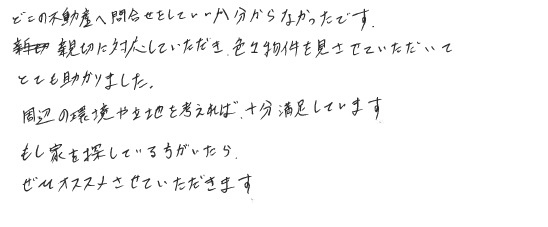 どこの不動産へ問合せをしていいか分からなかったです。
親切に対応していただき、色々物件を見させていただいて
とても助かりました。
周辺の環境や立地を考えれば、十分満足しています
もし家を探している方がいたら、
ぜひオススメさせていただきます